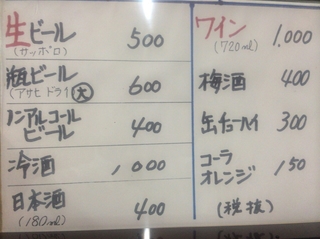 生ビール 500
(サッポロ)
瓶ビール 600
(アサヒ ドライ 大)
ノンアルコール
ビール 400
冷酒 1,000
日本酒 400
(180ml)
ワイン 1,000
(720ml)
梅酒 400
缶チューハイ 300
コーラ
オレンジ 150
(税抜)